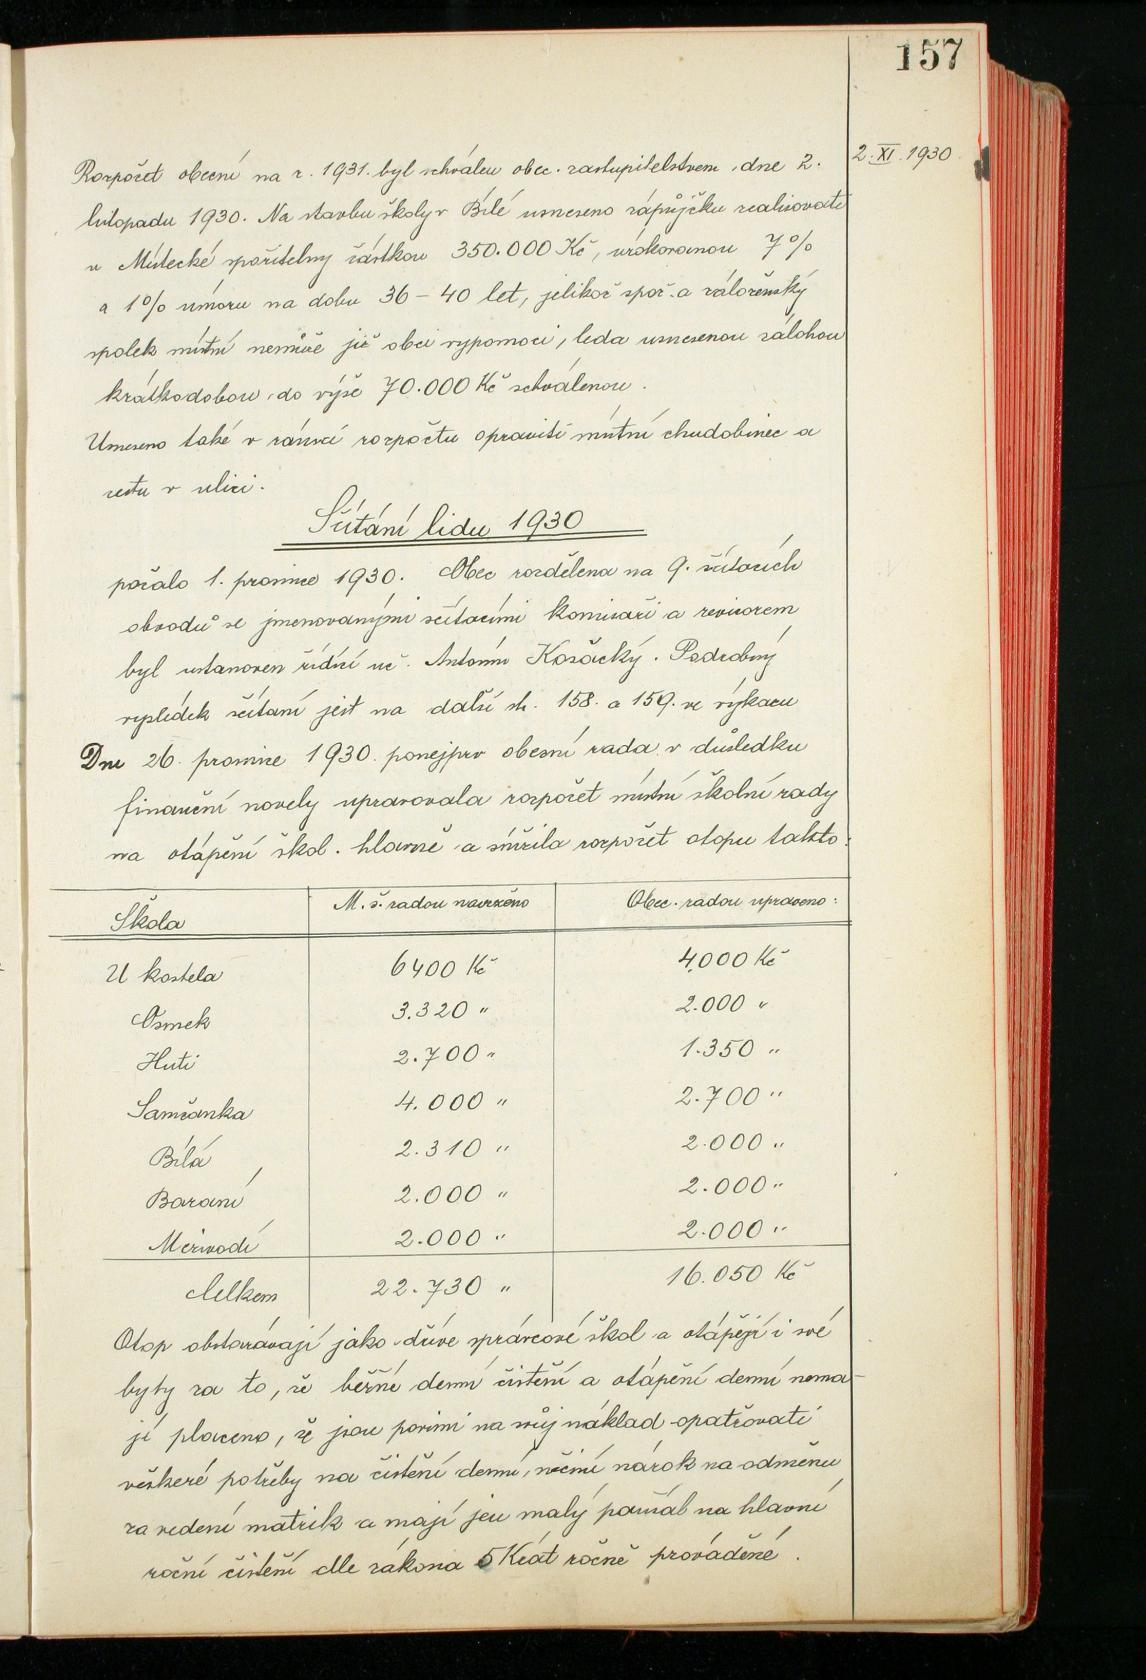 157
2. XI. 1930.
Rozpočet obecní na r. 1931. byl schválen obec. zastupitelstvem dne 2.
listopadu 1930. Na stavbu školy v Bílé usneseno zápůjčku realisovati
u Místecké spořitelny částkou 350.000 Kč, úrokovanou 7%
a 1% úmoru na dobu 36 – 40 let, jelikož spoř. a záloženský
spolek místní nemůže již obci vypomoci, leda usnesenou zálohou
krátkodobou do výše 70.000 Kč schválenou.
Usneseno také v rámci rozpočtu opraviti místní chudobinec a
cestu v ulici.
Sčítání lidu 1930
počalo 1. prosince 1930. Obec rozdělena na 9. sčítacích
obvodů se jmenovanými sčítacími komisaři a revisorem
byl ustanoven řídící uč. Antonín Kosácký. Podrobný
výsledek sčítání jest na další str. 158. a 159. ve výkazu
Dne 26. prosince 1930. ponejprv obecní rada v důsledku
finanční novely upravovala rozpočet místní školní rady
na otápění škol. hlavně a snížila rozpočet otopu takto:
Škola M. š. radou navrženo Obec. radou upraveno:
U kostela 6400 Kč 4.000 Kč
Ósmek 3.320 " 2.000 "
Huti 2.700 " 1.350 "
Samčanka 4.000 " 2.700 "
Bílá 2.310 " 2.000 "
Baraní 2.000 " 2.000 "
Mezivodí 2.000 " 2.000 "
Celkem 22.730 " 16.050 Kč
Otop obstarávají jako dříve správcové škol a otápějí i své
byty za to, že běžné denní čistění a otápění denní nema-
jí placeno, že jsou povinni na svůj náklad opatřovati
veškeré potřeby na čistění denní, nečiní nárok na odměnu
za vedení matrik a mají jen malý paušál na hlavní
roční čistění dle zákona 5 Krát ročně prováděné.